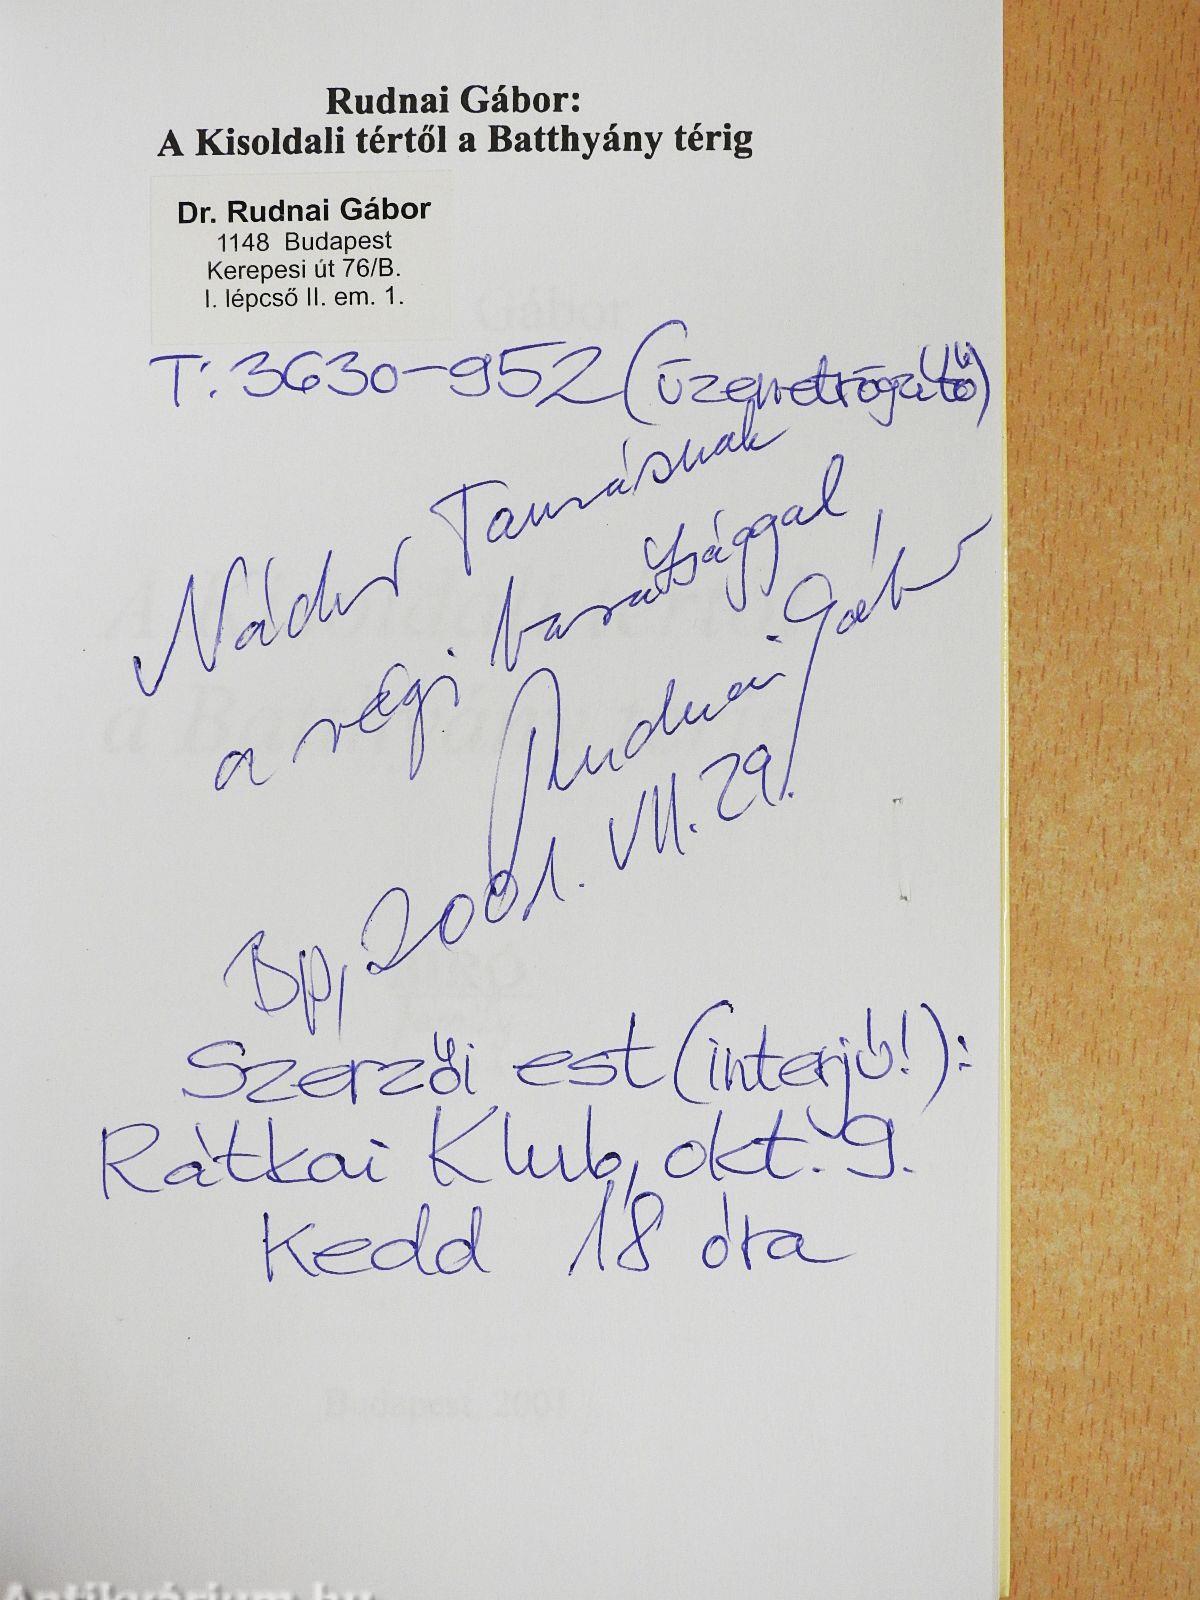 Rudnai Gábor:
A Kisoldali tértől a Batthyány térig
Dr. Rudnai Gábor
1148 Budapest
Kerepesi út 76/B.
I. lépcső II. em. 1.
T: 3630-952 (üzenetrögzítő)
Nádor Tamásnak
a régi barátsággal
Rudnai Gábor
Bp, 2001. VII. 29.
Szerzői est (interjú!):
Rátkai Klub, okt. 9.
Kedd 18 óra
Budapest, 2001
Antikvárium.hu